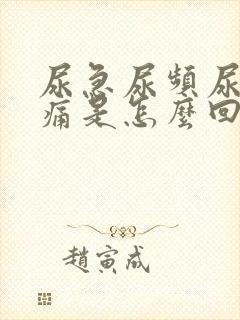 尿急尿頻尿
痛是怎麼回
趙寅成